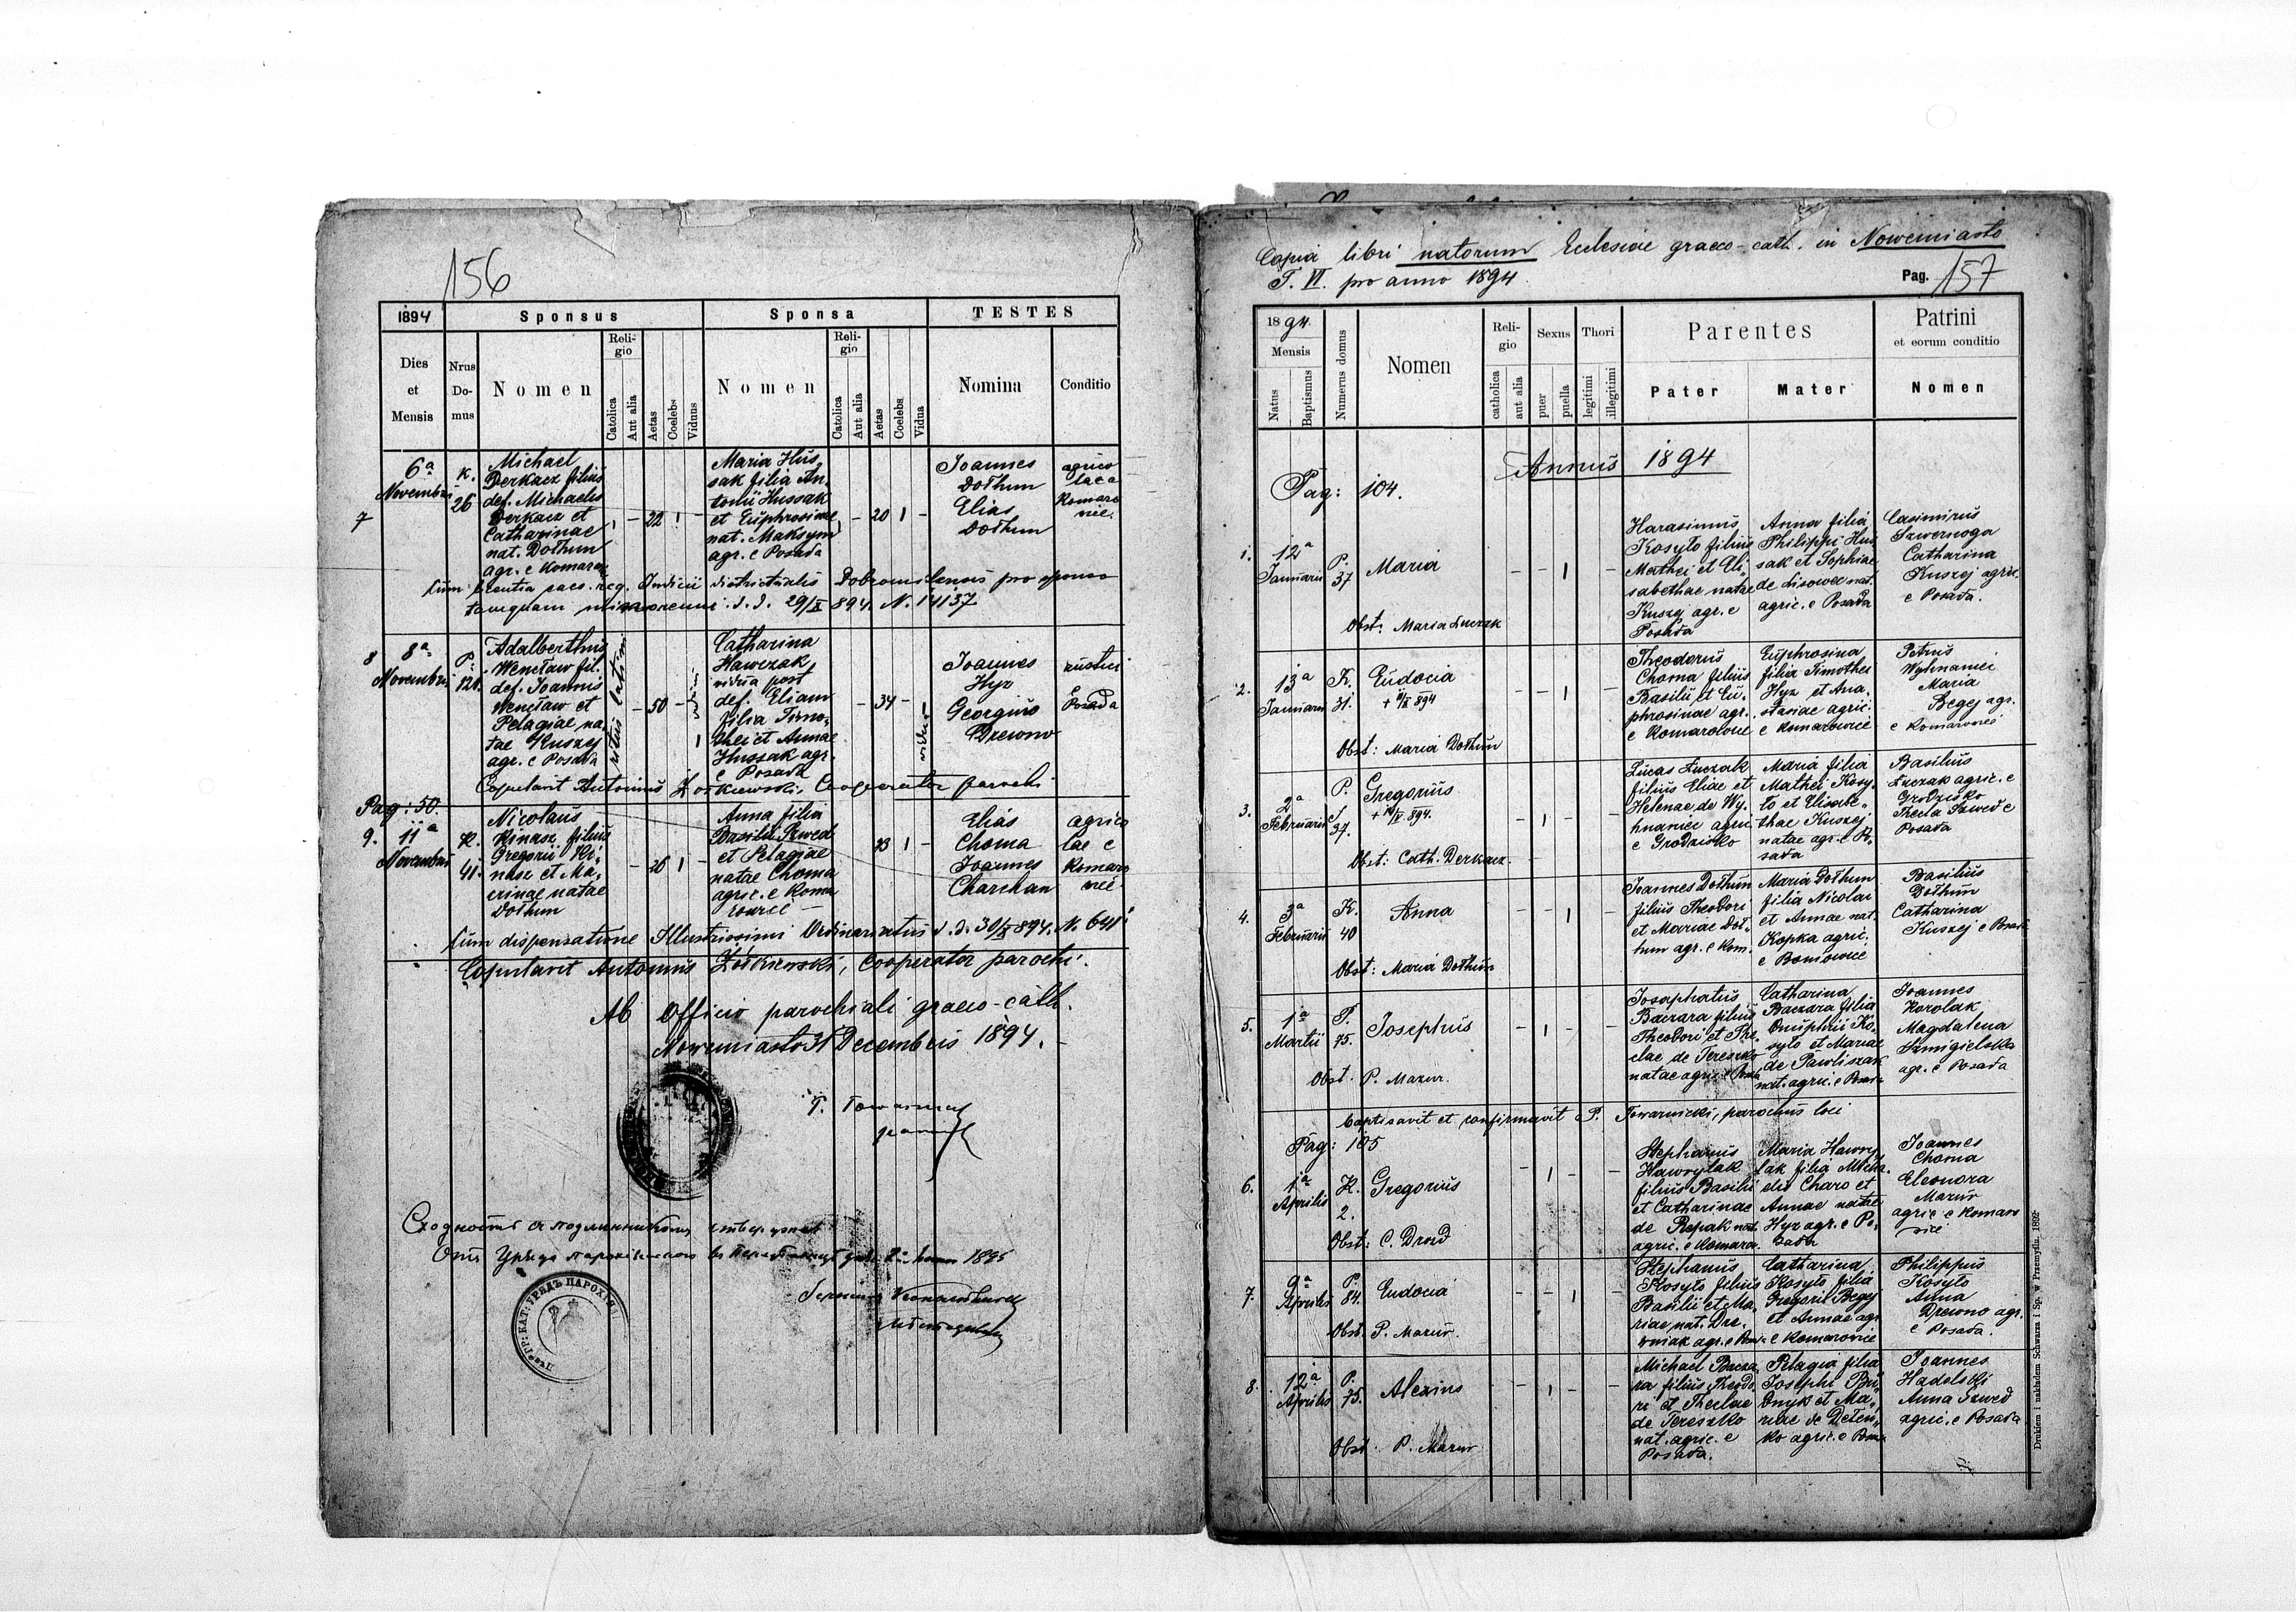 156
1894
Sponsus
Sponsa
TESTES
Dies et Mensis
Nrus Domus
Nomen
Religio
Catholica
Aut alia
Aetas
Coelebs
Viduus
Nomen
Religio
Catholica
Aut alia
Aetas
Coelebs
Vidua
Nomina
Conditio
7
6a
Novembris
K.
26
Michael
Derkacz filius
def. Michaelis
Derkacz et
Catharinae
nat. Dołhun
agr. e Komarow
22
Maria Hus-
sak filia An-
tonii Hussak
et Euphrosinae
nat. Maksym
agr. e Posada
20
Joannes
Dołhun
Elias
Dołhun
agrico
lae e
Komaro
wic.
Cum licentia caes. reg. Judicii districtualis Dobromilensis pro sponso
tamquam minorenni d. d. 29/X 894 N. 14137
8
8a
Novembris
P.
121.
Adalberthus
Wencław fil.
def. Joannis
Wencław et
Pelagiae na-
tae Kuszej
agr. e Posada
ritus latini
50
Catharina
Hawczak
vidua post
def. Eliam
filia Timo-
thei et Annae
Hussak agr.
e Posada
34
vidua
Joannes
Hyz
Georgius
Drewno
rustici
e
Posada
Copulavit Antonius Żołkiewski, Cooperator parochi
Pag: 50.
9.
11a
Novembris
K.
41.
Nicolaus
Kinasz filius
Gregorii Ki-
nasz et Ma-
rinae natae
Dołhun
26
Anna filia
Basilii Szwed
et Pelagiae
natae Choma
agric. e Koma
rowic
23
Elias
Choma
Joannes
Charchan
agrico
lae e
Komaro
wic
Cum dispensatione Illustrissimi Ordinariatus d. d. 30/X 894. N. 641
Copulavit Antonius Żołkiewski, cooperator parochi.
Ab Officio parochiali graeco-cath.
Nowemiasto 31 Decembris 1894.
1895
ГР: КАТ: УРЯДЪ ПАРОХІЯ
Copia libri natorum Ecclesiae graeco-cath. in Nowemiasto
T. VI. pro anno 1894.
Pag. 157
1894.
Mensis
Natus
Baptismus
Numerus domus
Nomen
Religio
catholica
aut alia
Sexus
puer
puella
Thori
legitimi
illegitimi
Parentes
Pater
Mater
Patrini
et eorum conditio
Nomen
Annus 1894
Pag: 104.
1.
12a
Januarii
P.
37
Maria
Obst: Maria Łuczak
Harasimus
Kosyło filius
Mathei et Eli-
sabethae natae
Kuszej agr. e
Posada
Anna filia
Philippi Hus
sak et Sophiae
de Lisowec nat.
agric. e Posada
Casimirus
Catharina
Kuszej agric.
e Posada.
2.
13a
Januarii
K.
31.
Eudocia
Obst: Maria Dołhun
Theodorus
Choma filius
Basilii et Eu-
phrosinae agr.
e Komarowic
Euphrosina
filia Timothei
Hyz et Ana-
stasiae agric.
e Komarowice
Petrus
Wyhnaniec
Maria
Begej agr.
e Komarowic
3.
2a
Februarii
P.
37.
Gregorius
Obst: Cath. Derkacz.
Lucas Łuczak
filius Eliae et
Helenae de Wy-
hnaniec agric
e Grodzisko
Maria filia
Mathei Kosy-
ło et Elisabe-
thae Kuszej
natae agr. e Po-
sada
Basilius
Łuczak agric. e
Grodzisko
Thecla Szwed e
Posada
4.
3a
Februarii
K.
40
Anna
Obst: Maria Dołhun
Joannes Dołhun
filius Theodori
et Mariae Doł-
hun agr. e Kom.
Maria Dołhun
filia Nicolai
et Annae nat.
Kopka agric.
e Boniowice
Basilius
Dołhun
Catharina
Kuszej e Posad
5.
1a
Martii
P.
75.
Josephus
Obst. P. Mazur.
Josaphatus
Baczara filius
Theodori et The-
clae de Tereszko
natae agric. e Posada
Catharina
Baczara filia
Onuphrii Ko-
syło et Mariae
de Pawliszak
nat. agric. e Posada
Joannes
Korolak
Magdalena
Szmigielska
agr. e Posada
baptisavit et confirmavit P. Towarnicki, parochus loci
Pag: 105
6.
1a
Aprilis
K.
2.
Gregorius
Obst: C. Drozd
Stephanus
Hawrylak
filius Basilii
et Catharinae
de Repak nat.
agric. e Komarow.
Maria Hawry
lak filia Micha-
elis Charo et
Annae natae
Hyz agr. e Po-
sada
Joannes
Choma
Eleonora
Mazur
agric e Komaro
wic
7.
9a
Aprilis
P.
84.
Eudocia
Obst. P. Mazur.
Stephanus
Kosyło filius
Basilii et Ma-
riae nat. Dre-
wniak agr. e Posada
Catharina
Kosyło filia
Gregorii Begej
et Annae agr
e Komarowice
Philippus
Kosyło
Anna
Drewno agr.
e Posada.
8.
12a
Aprilis
P.
75.
Alexius
Obst. P. Mazur
Michael Bacza
ra filius Theodo
ri et Theclae
de Tereszko
nat. agric. e
Posada.
Pelagia filia
Josephi Bu-
Onyk et Ma-
riae de Deten-
ko agric. e Posada
Joannes
Hadolski
Anna Szwed
agric. e Posada
Drukiem i nakładem Schwarza i Sp. w Przemyślu. 1892.